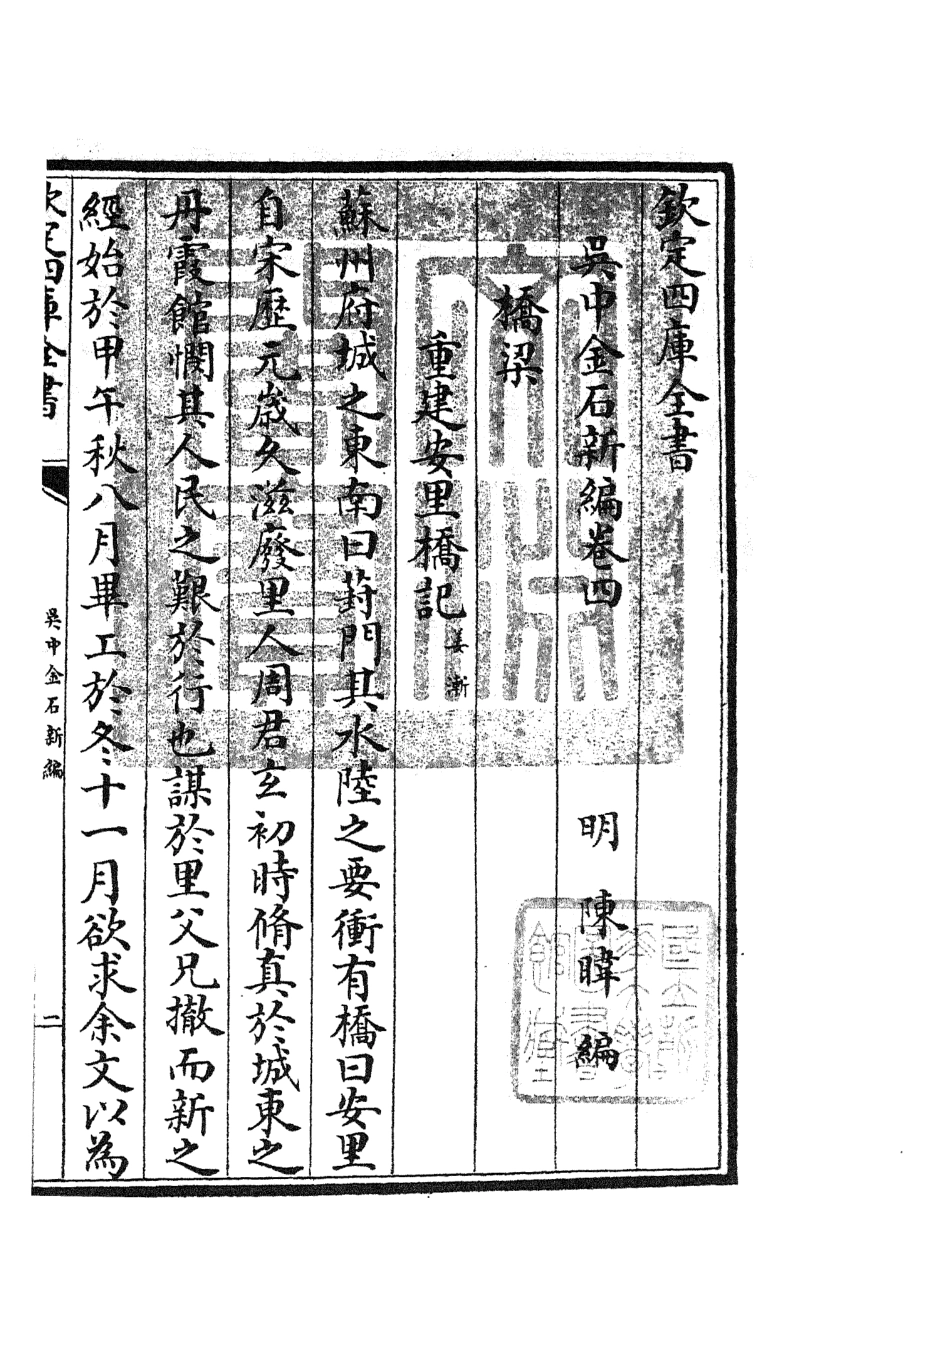 欽定四庫全書
吳中金石新編卷四
明 陳暐 編
橋梁
重建安里橋記 姜漸
蘇州府城之東南曰葑門其水陸之要衝有橋曰安里
自宋歴元嵗久滋廢里人周君玄初時脩真於城東之
丹霞館憫其人民之艱於行也謀於里父兄撤而新之
經始於甲午秋八月畢工於冬十一月欲求余文以為
欽定四庫全書
吳中金石新編
二